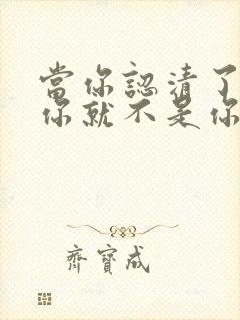 當你認清了
你就不是你
齊寶成